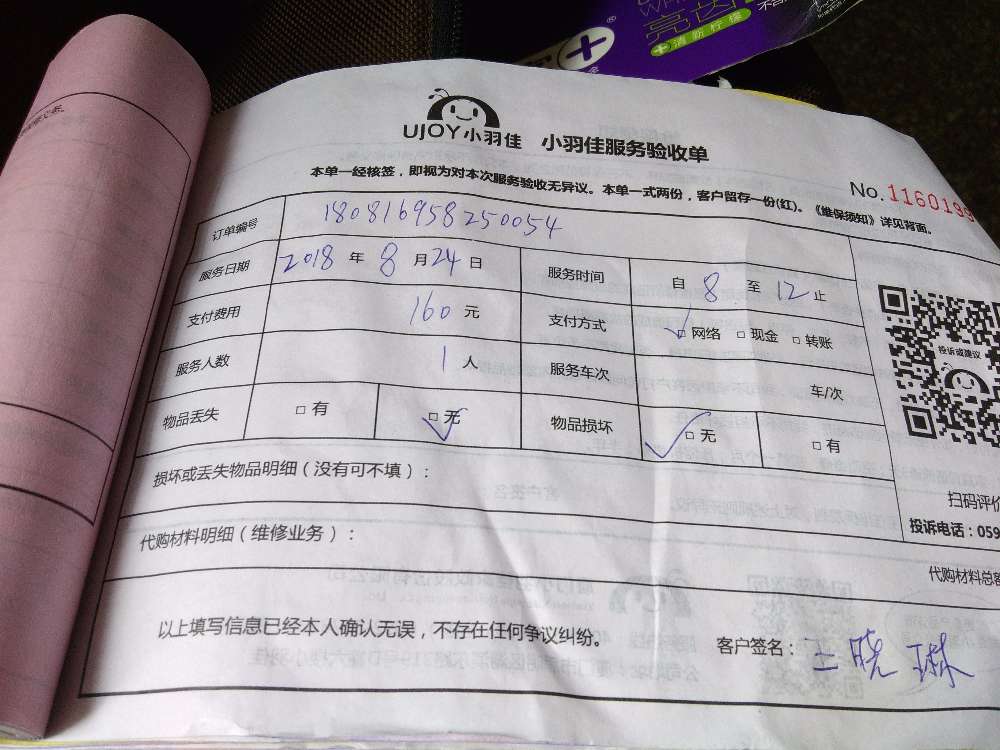 亮齿
+清新柠檬
UJOY小羽佳 小羽佳服务验收单
No.1160199
本单一经核签，即视为对本次服务验收无异议。本单一式两份，客户留存一份(红)。《维保须知》详见背面。
订单编号 180816958250054
服务日期 2018 年 8 月 24 日 服务时间 自 8 至 12 止
支付费用 160 元 支付方式 □网络 □现金 □转账
服务人数 1 人 服务车次 车/次
物品丢失 □有 □无 物品损坏 □无 □有
投诉或建议
损坏或丢失物品明细（没有可不填）：
扫码评价
投诉电话：059
代购材料明细（维修业务）：
代购材料总
以上填写信息已经本人确认无误，不存在任何争议纠纷。
客户签名：王晓琳